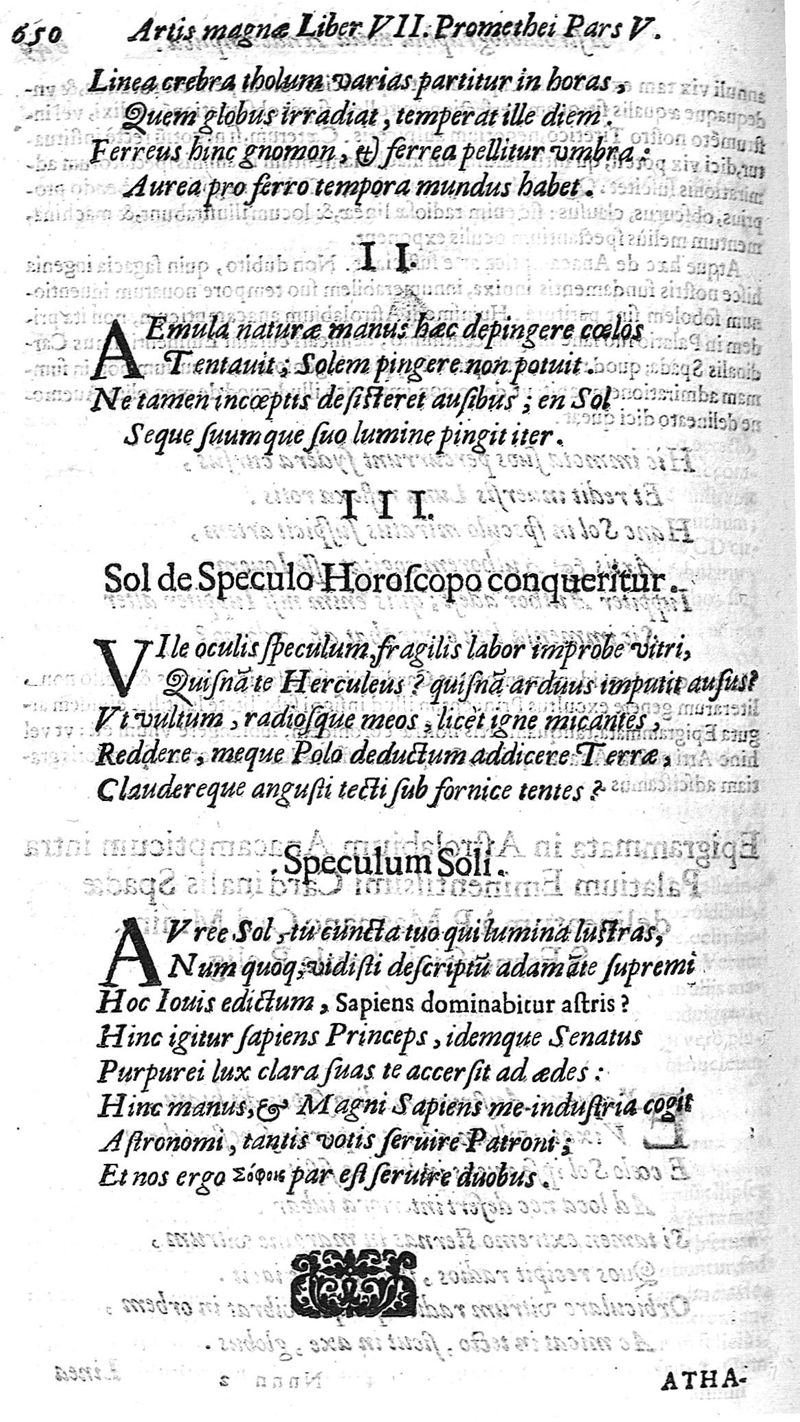 650 Artis magnæ Liber VII. Promethei Pars V.
Linea crebra tholum varias partitur in horas,
Quem globus irradiat, temperat ille diem.
Ferreus hinc gnomon, & ferrea pellitur vmbra:
Aurea pro ferro tempora mundus habet.
II.
AEmula naturæ manus hæc depingere cœlos
Tentauit; Solem pingere non potuit.
Ne tamen incœptis desisteret ausibus; en Sol
Seque suumque suo lumine pingit iter.
III.
Sol de Speculo Horoscopo conqueritur.
VIle oculis speculum, fragilis labor improbe vitri,
Quisnã te Herculeus? quisnã arduus imputit ausus?
Vt vultum, radiosque meos, licet igne micantes,
Reddere, meque Polo deductum addicere Terræ,
Claudereque angusti tecti sub fornice tentes?
Speculum Soli.
AVree Sol, tu cuncta tuo qui lumina lustras,
Num quoq; vidisti descriptũ adamãte supremi
Hoc Iouis edictum, Sapiens dominabitur astris?
Hinc igitur sapiens Princeps, idemque Senatus
Purpurei lux clara suas te accersit ad ædes:
Hinc manus, & Magni Sapiens me industria cogit
Astronomi, tantis votis seruire Patroni;
Et nos ergo Σόφοις par est seruire duobus.
ATHA-